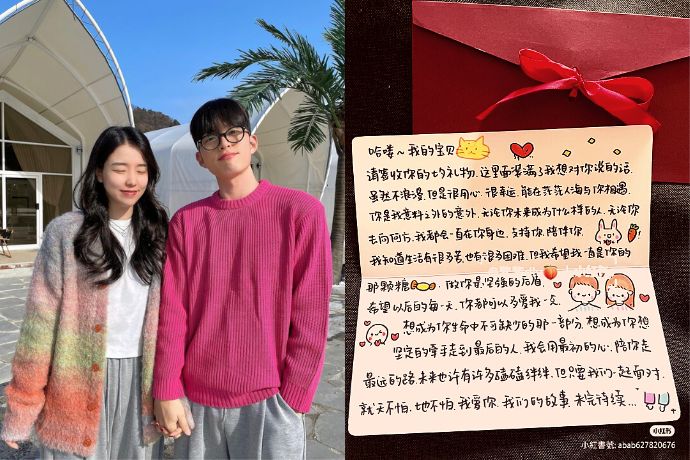 哈喽~我的宝贝
请签收你的七夕礼物.这里面装满了我想对你说的话.
虽然不浪漫.但是很用心.很幸运.能在茫茫人海与你相遇.
你是我意料之外的意外.无论你未来成为什么样的人.无论你
去向何方.我都会一直在你身边.支持你.陪伴你.
我知道生活有很多苦.也有很多困难.但我希望我一直是你的
那颗糖 做你最坚强的后盾.
希望以后的每一天.你都可以多爱我一点.
想成为你生命中不可缺少的那一部分.想成为你想
坚定的牵手走到最后的人.我会用最初的心.陪你走
最远的路.未来也许有许多磕磕绊绊.但只要我们一起面对.
就天不怕.地不怕.我爱你.我们的故事.未完待续...
小红书
小紅書號: abab627820676